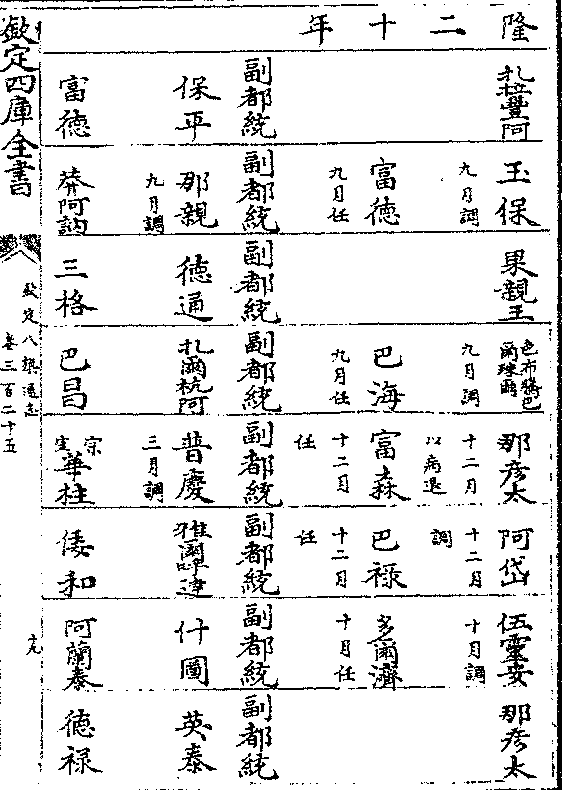 隆二十年
扎拉豐阿
副都統
保平
富德
玉保 九月調
富德 九月任
副都統
那親 九月調
莽阿訥
果親王
副都統
德通
三格
色布騰巴爾珠爾 九月調
巴海 九月任
副都統
扎爾杭阿
巴昌
那彥太 十二月以病退
富森 十二月任
副都統
普慶 三月調
宗室華柱
阿岱 十二月調
巴祿 十二月任
副都統
倭和
伍靈安 十月調
多爾濟 十月任
副都統
什圖
阿蘭泰
那彥太
副都統
英泰
德祿
欽定四庫全書
欽定八旗通志
卷三百二十五
十九